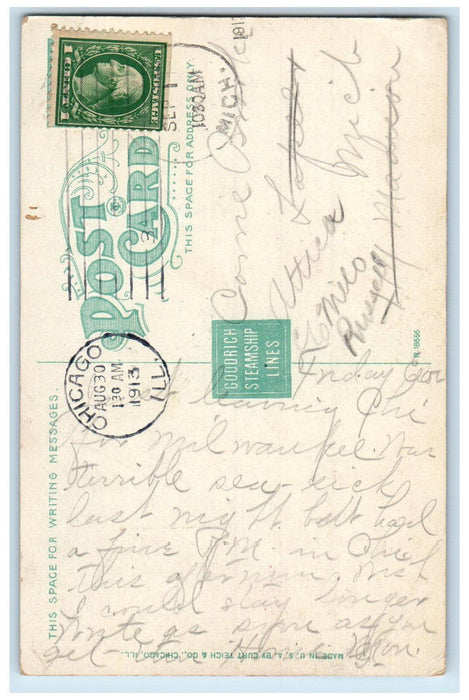 U.S. POSTAGE
1 CENT 1
SEP 1
1030AM
MICH.
1913
POST CARD
THIS SPACE FOR ADDRESS ONLY
Lapeer
Mich
Attica
Madison
% Milo
Russell
C.R. 19556
GOODRICH
STEAMSHIP
LINES
CHICAGO
AUG 30
130 AM
1913
ILL.
THIS SPACE FOR WRITING MESSAGES.
Friday eve
leaving Chi
for Milwaukee. Was
terrible sea-sick
last night but had
a fine P.M. in Chi
this afternoon wish
I could stay longer
Write as soon as you
get
Mon.
MADE IN U.S.A. BY CURT TEICH & CO., CHICAGO, ILL.